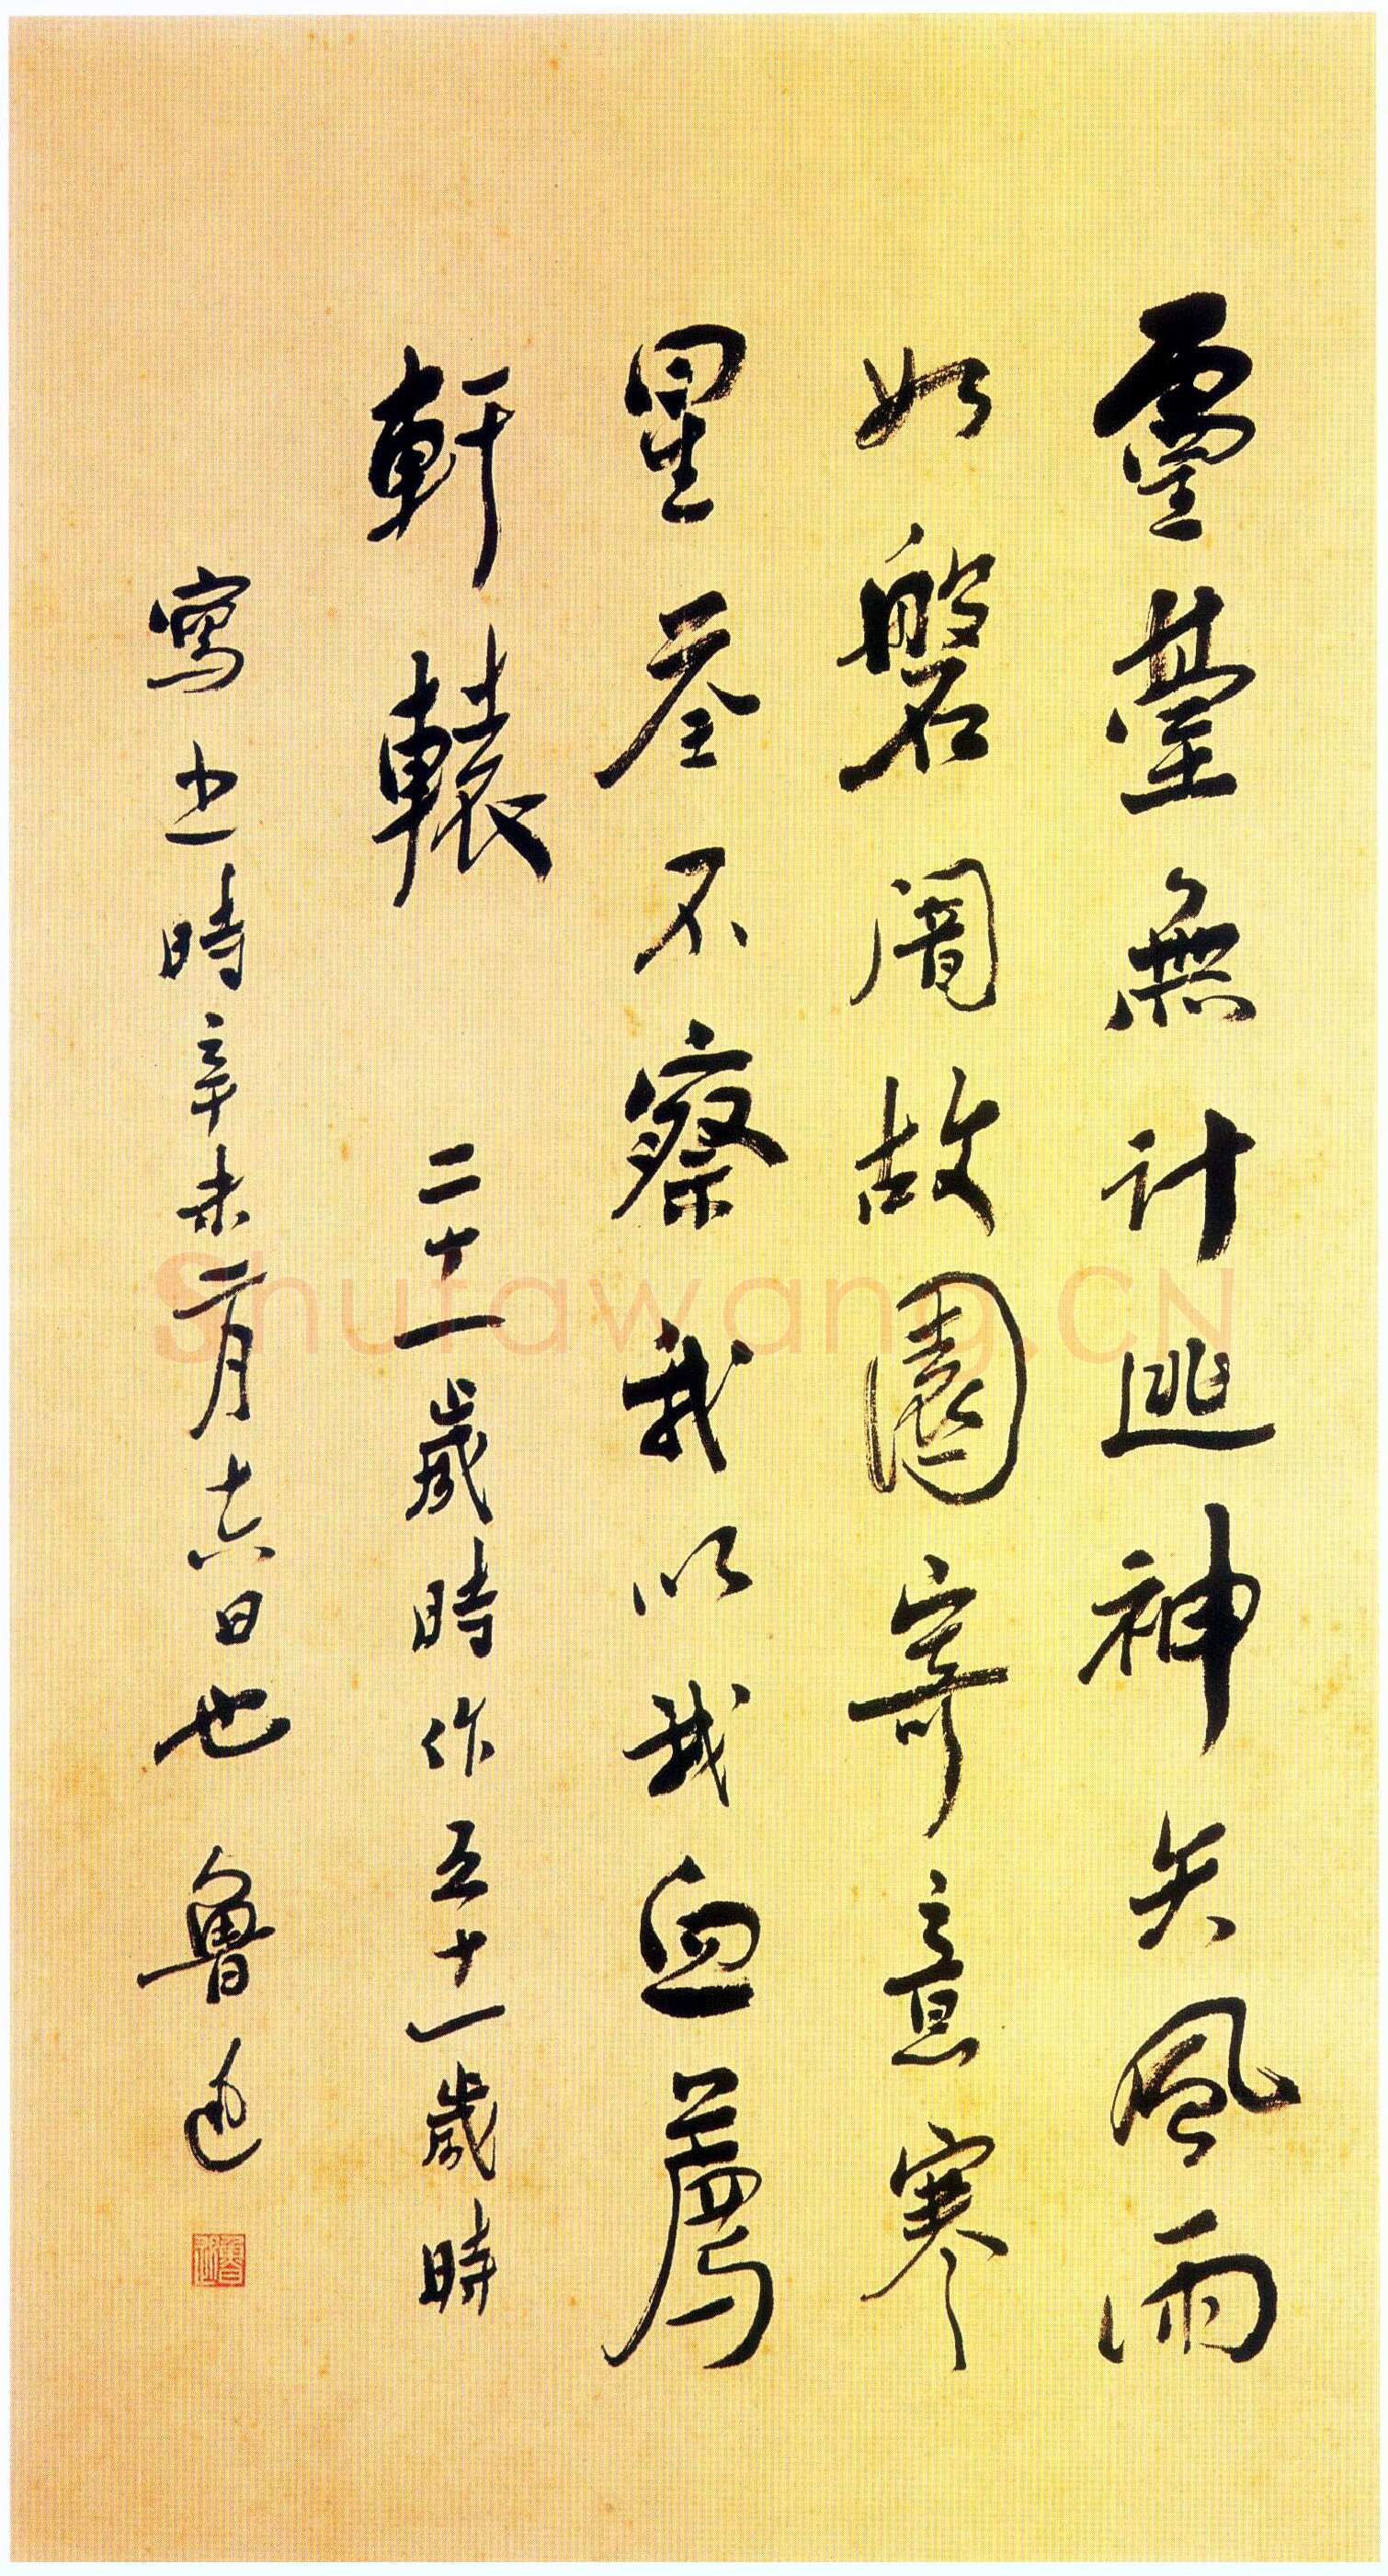 靈臺無計逃神矢風雨
如磐闇故園寄意寒
星荃不察我以我血薦
軒轅 二十一歲時作五十一歲時
寫之時辛未二月十六日也 魯迅
Shufawang.CN